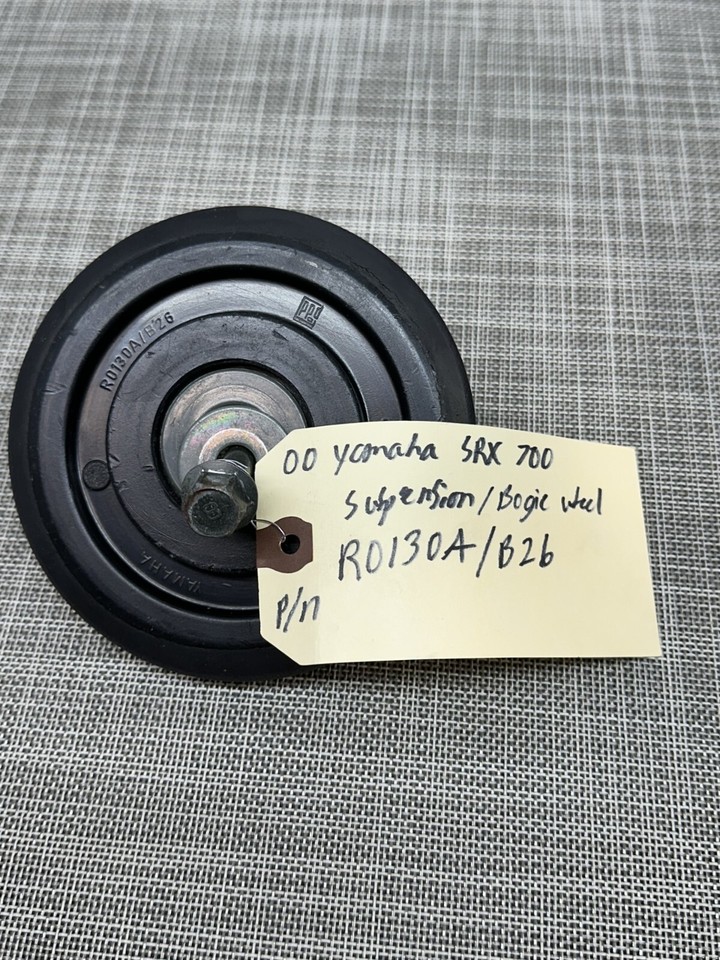 R0130A/B26
PPD
YAMAHA
00 Yamaha SRX 700
Suspension/Bogie wheel
R0130A/B26
P/n